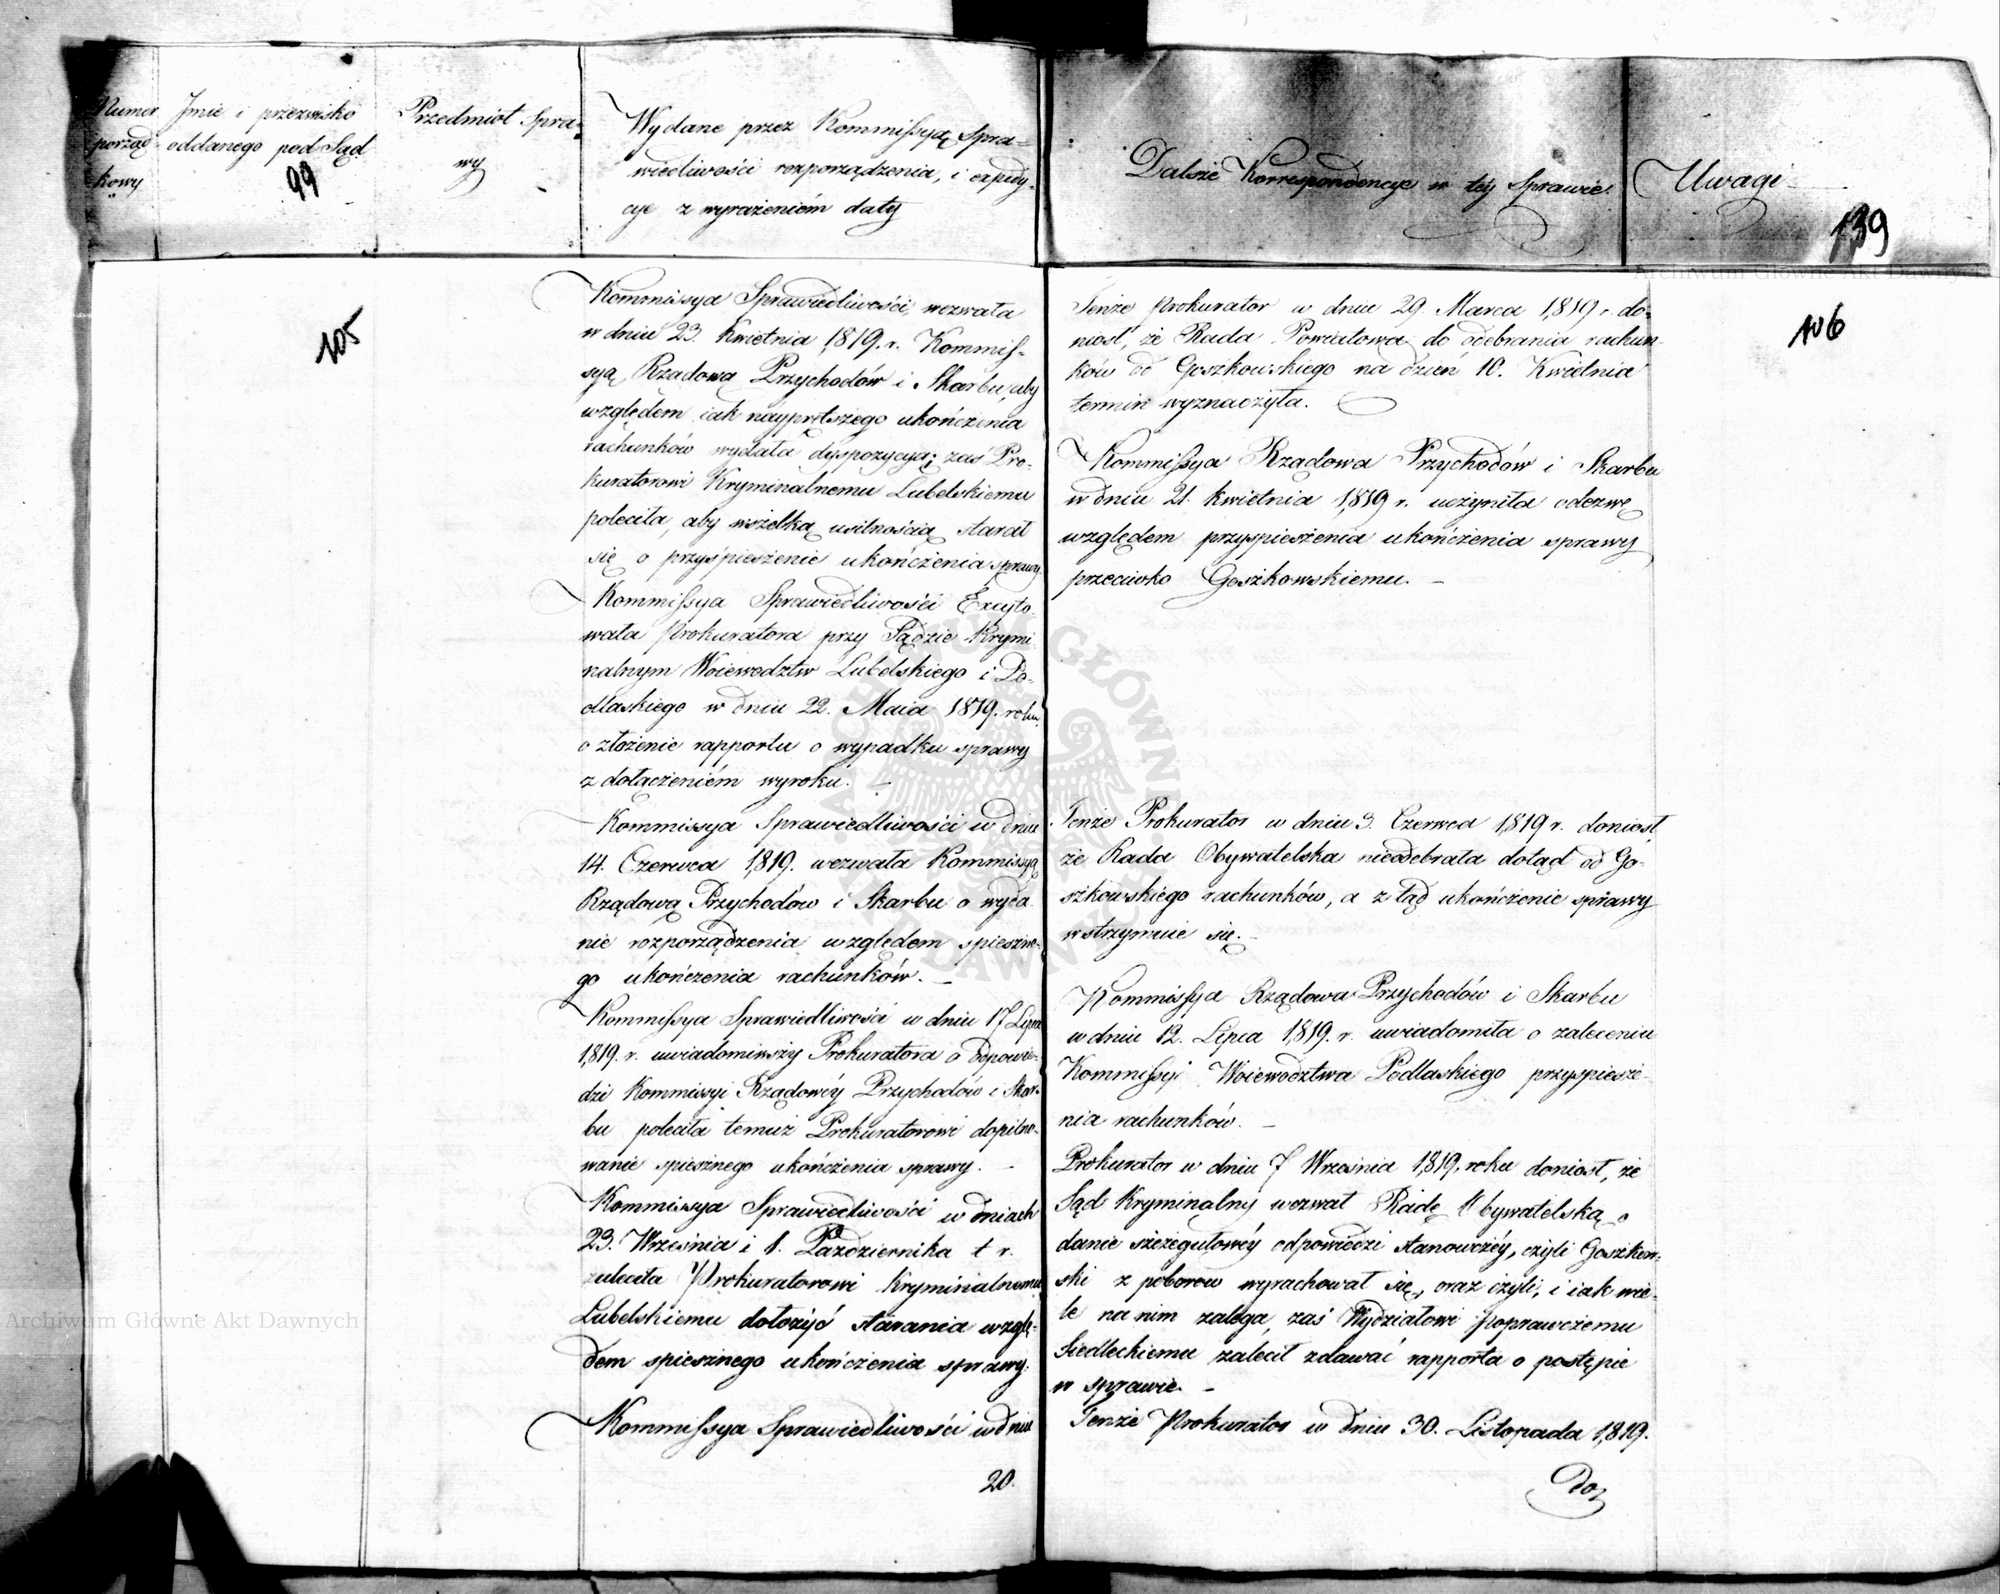 Numer
porząd-
kowy
Jmie i przezwisko
oddanego pod Sąd.
99
Przedmiot Spra-
wy
Wydane przez Kommissyą Spra-
wiedliwości rozporządzenia, i expedy-
cye z wyrażeniem daty
105
Kommissya Sprawiedliwości wezwała
w dniu 23. Kwietnia 1819. r. Kommis-
syą Rządową Przychodów i Skarbu, aby
względem iak nayprętszego ukończenia
rachunków wydała dyspozycyą; zaś Pro-
kuratorowi Kryminalnemu Lubelskiemu
poleciła, aby wszelką usilnością starał
się o przyśpieszenie ukończenia sprawy.
Kommissya Sprawiedliwości Excyto-
wała Prokuratora przy Sądzie Krymi
nalnym Woiewodztw Lubelskiego i Po-
dlaskiego w dniu 22. Maia 1819. roku
o złożenie rapportu o wypadku sprawy
z dołączeniem wyroku. —
Kommissya Sprawiedliwości w dniu
14. Czerwca 1819. wezwała Kommissyą
Rządową Przychodów i Skarbu o wyda
nie rozporządzenia względem spieszne-
go ukończenia rachunków. —
Kommissya Sprawiedliwości w dniu 17 Lipca
1819. r. uwiadomiwszy Prokuratora o odpowie-
dzi Kommissyi Rządowéy Przychodów i Skar-
bu poleciła temuż Prokuratorowi dopilno-
wanie spiesznego ukończenia sprawy. —
Kommissya Sprawiedliwości w dniach
23. Września i 1. Października t. r.
zaleciła Prokuratorowi Kryminalnemu
Lubelskiemu dołożyć starania wzglę-
dem spiesznego ukończenia sprawy.
Kommissya Sprawiedliwości w dniu
20.
Dalsze Korrespondencye w téy Sprawie.
Uwagi
139
106
Tenże Prokurator w dniu 29. Marca 1819 r. do-
niosł, że Rada Powiatowa do odebrania rachun-
ków od Goszkowskiego na dzień 10. Kwietnia
termin wyznaczyła.
Kommissya Rządowa Przychodów i Skarbu
w dniu 21. kwietnia 1819 r. uczyniła odezwę
względem przyspieszenia ukończenia sprawy
przeciwko Goszkowskiemu. —
Tenże Prokurator w dniu 3. Czerwca 1819 r. doniosł
że Rada Obywatelska nieodebrała dotąd od Go-
szkowskiego rachunków, a z tąd ukończenie sprawy
wstrzymuie się. —
Kommissya Rządowa Przychodów i Skarbu
w dniu 12. Lipca 1819. r. uwiadomiła o zaleceniu
Kommissyi Woiewództwa Podlaskiego przyspiesze-
nia rachunków. —
Prokurator w dniu 7 Września 1819. roku doniosł, że
Sąd Kryminalny wezwał Radę Obywatelską o
danie szczegułowéy odpowiedzi stanowczéy, czyli Goszkow-
ski z poborów wyrachował się, oraz czyli, i iak wie-
le na nim zalega, zaś Wydziałowi poprawczemu
Siedleckiemu zalecił zdawać rapporta o postępie
w sprawie. —
Tenże Prokurator w dniu 30. Listopada 1819.
Do,
Archiwum Główne Akt Dawnych
Archiwum Główne Akt Dawnych